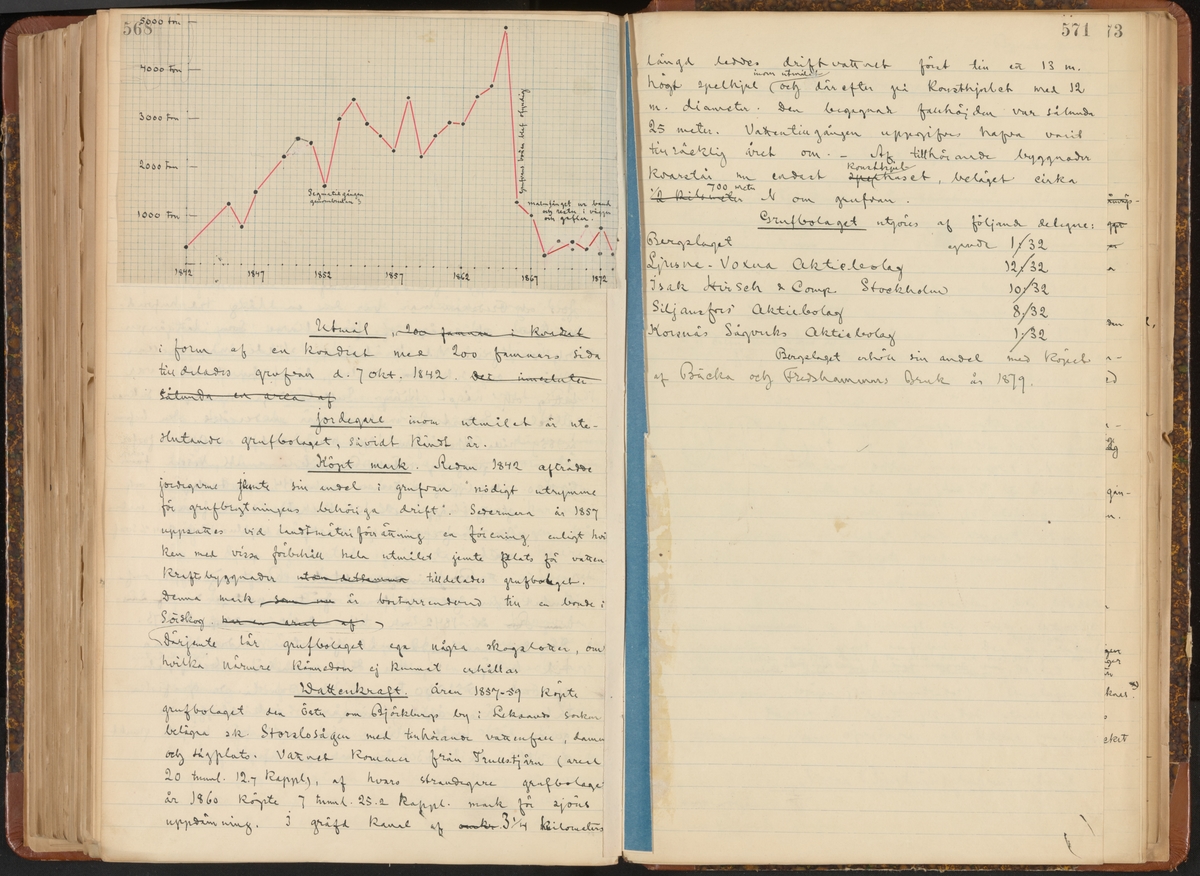 568
5000 ton
4000 ton
3000 ton
2000 ton
1000 ton
1842 1847 1852 1857 1862 1867 1872
Segmalmgången
grufvans botten blef ofyndig
malmfånget ur band
och rester i väggar
om gruflen.
Utmål, 200 famnar i kvadrat
i form af en kvadrat med 200 famnars sida
tilldelades grufvan d. 7 Okt. 1842. Det innesluter
sålunda en area af
Jordegare inom utmålet är ute-
slutande grufbolaget, såvidt kändt är.
Köpt mark. Redan 1842 afträdde
jordegarne jemte sin andel i grufvan "nödigt utrymme
för grufbrytningens behöriga drift". Sedermera år 1857
uppsattes vid landtmäteriförrättning en förening enligt hvil
ken med vissa förbehåll hela utmålet jemte plats för vatten
kraftsbyggnader utom detsamma tilldelades grufbolaget.
Denna mark som nu är bortarrenderad till en bonde i
Sörskog
Därjemte lär grufbolaget ega några skogslotter, om
hvilka närmre kännedom ej kunnat erhållas
Wattenkraft. Åren 1857-59 köpte
grufbolaget den öster om Björkbergs by i Leksands socken
belägna sk. Storslosågen med tillhörande vattenfall, damm
och sågplats. Vattnet kommer från Trullstjärn (areal
20 tunnl. 12.7 kappl), af hvars strandegare grufbolaget
år 1860 köpte 7 tunnl. 25.2 kappl. mark för sjöns
uppdämning. I gräfd kanal af 3 1/4 kilometers
571
73
längd leddes driftvattnet först till ett 13 m.
inom utmålet
högt spelhjul (och därefter på konsthjulet med 12
m. diameter. Den begagnade fallhöjden var sålunda
25 meter. Vattentillgången uppgifves hafva varit
tillräcklig året om. – Af tillhörande byggnader
konsthjuls
kvarstår nu endast spelhuset, beläget cirka
700 meter
1/2 kilometer N om grufvan.
Grufbolaget utgöres af följande delegare:
Bergslaget egande 1/32
Ljusne-Voxna Aktiebolag 12/32
Isak Hirsch & Comp Stockholm 10/32
Siljansfors Aktiebolag 8/32
Korsnäs Sågverks Aktiebolag 1/32
Bergslaget erhöll sin andel med köpet
af Bäcka och Fredshammars Bruk år 1879.